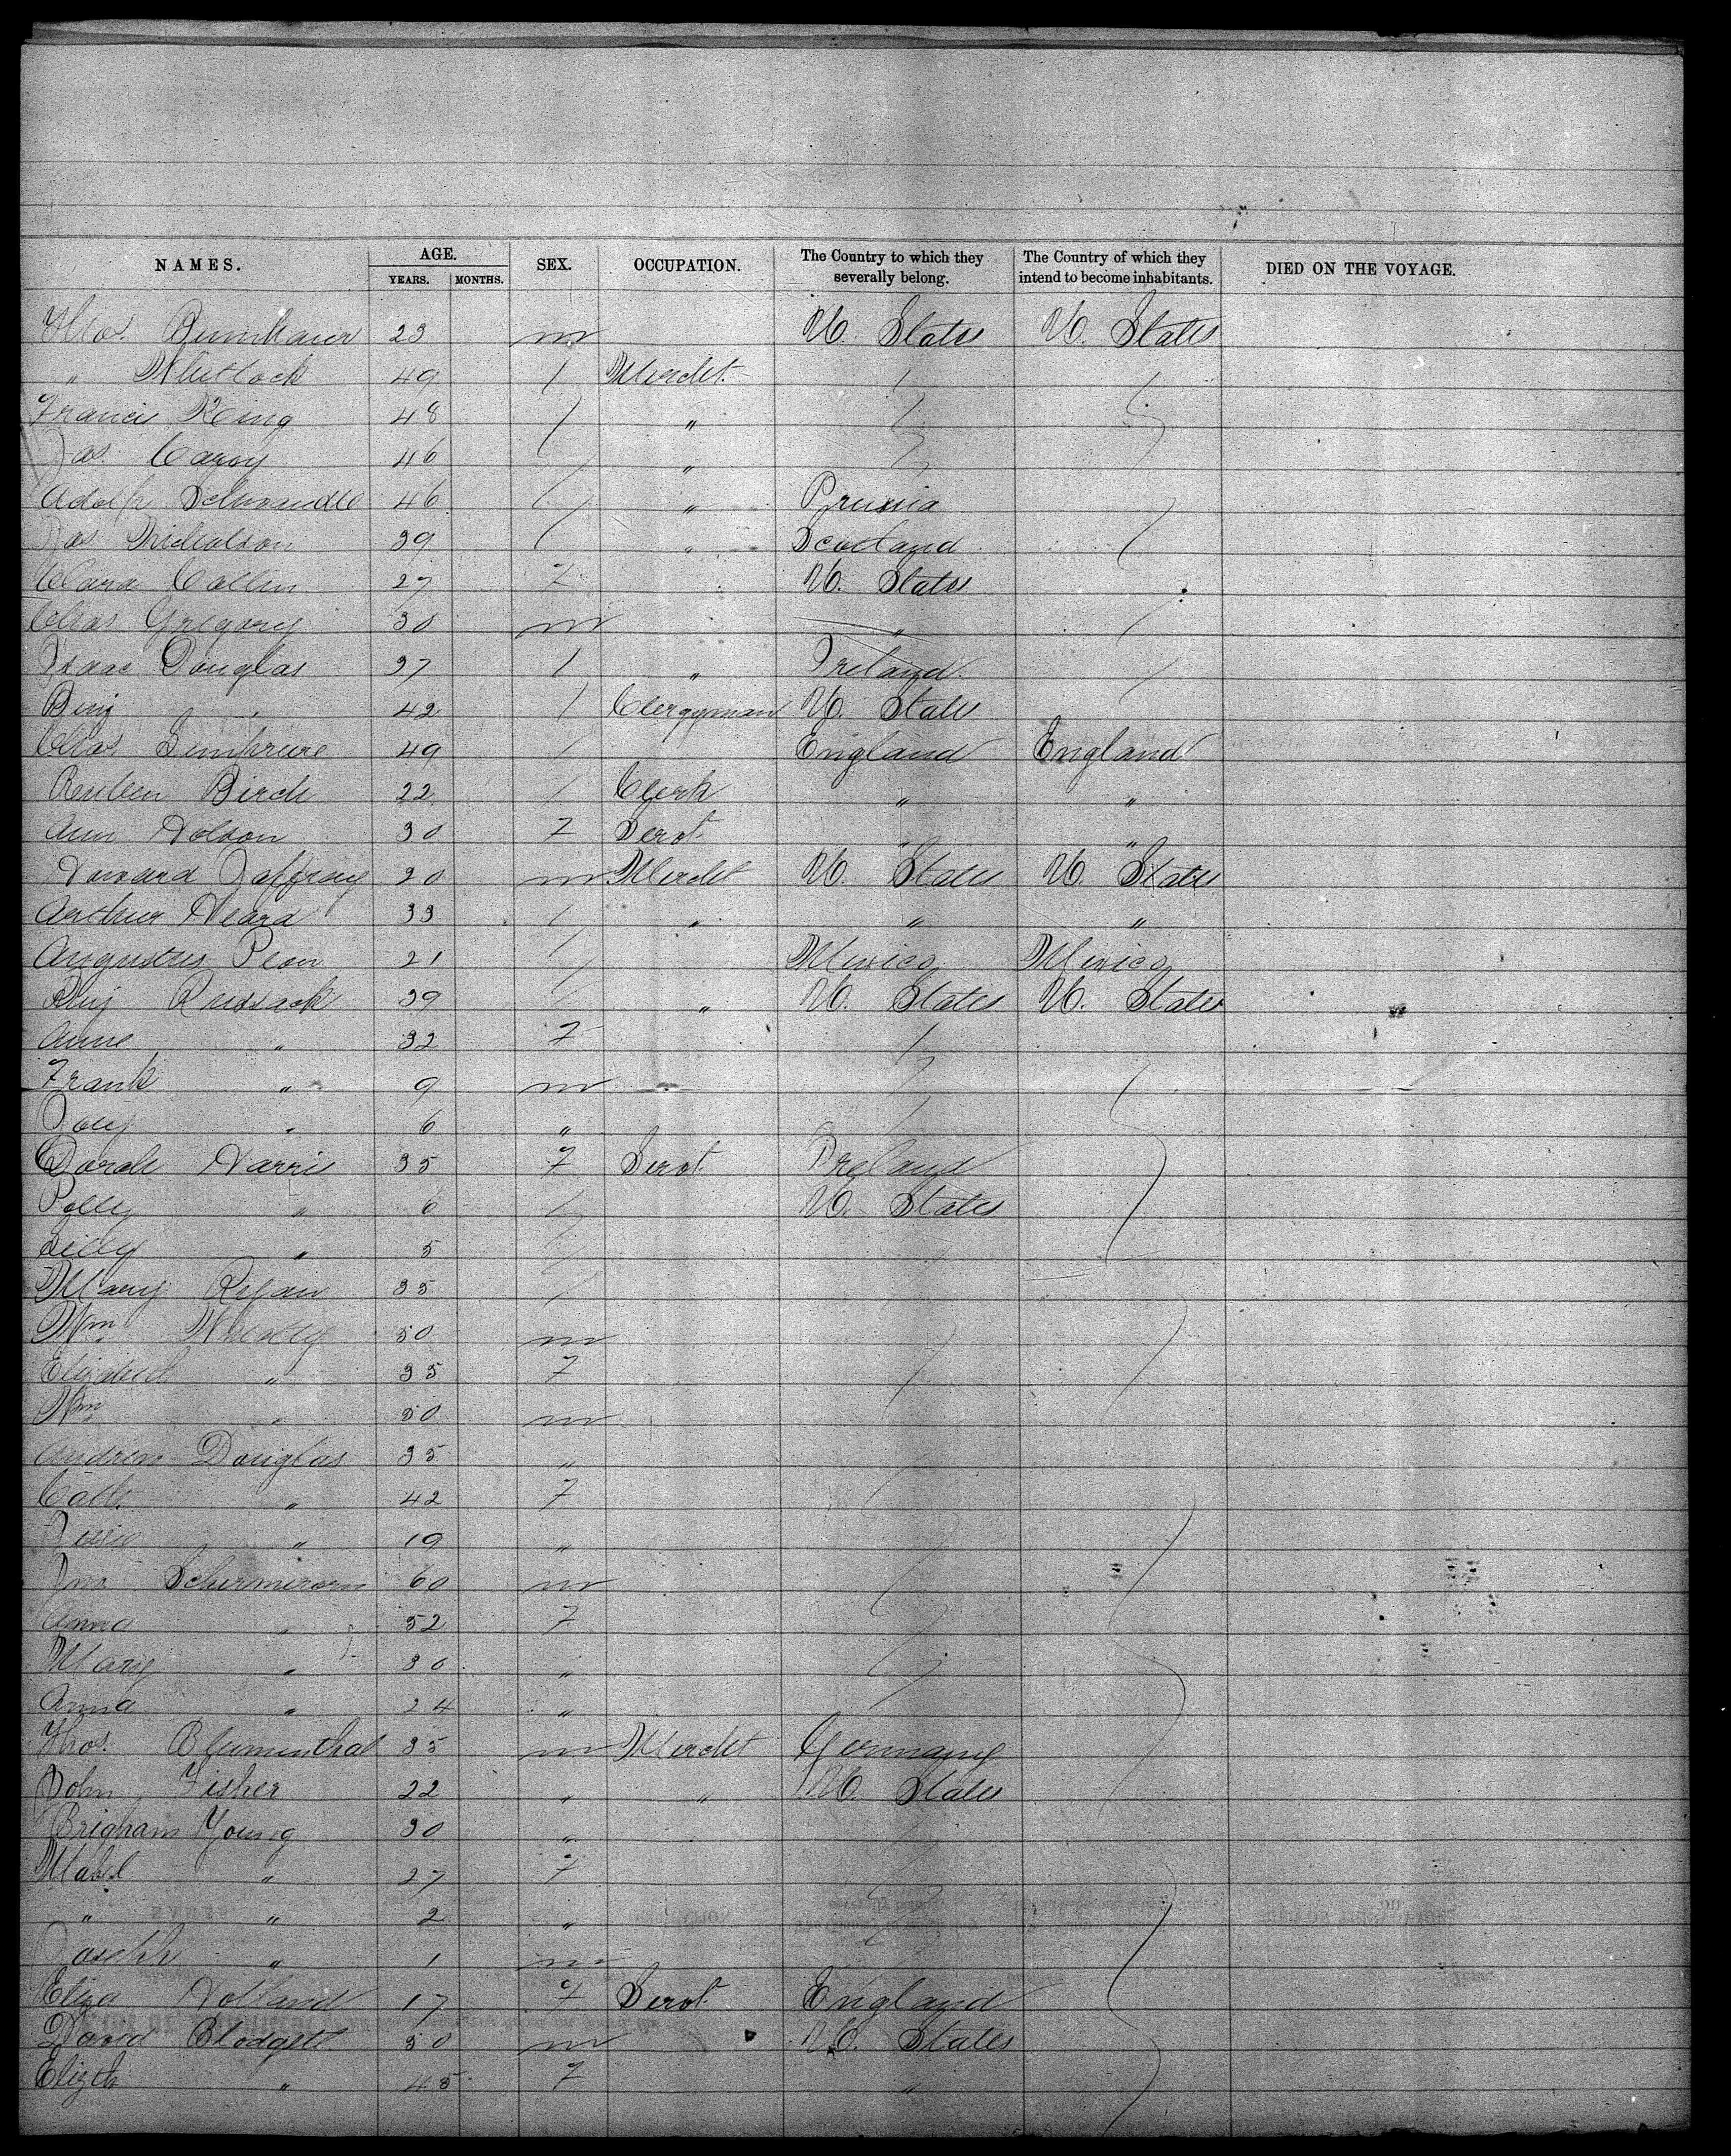 NAMES. AGE. YEARS. MONTHS. SEX. OCCUPATION. The Country to which they severally belong. The Country of which they intend to become inhabitants. DIED ON THE VOYAGE.
Thos. 23 m U. States U. States
" Whitlock 49 / Mercht. / /
Francis King 48 / "
Jas. Carey 46 "
Adolph 46 " Prussia
Jas Nicholson 39 " Scotland
Clara 27 F U. States
Chas Gregory 30 m "
Isaac Douglas 37 / " Ireland
Benj " 42 / Clergyman U. States
Chas. 49 / England England
Reuben Birch 22 / Clerk " "
Ann 30 F Servt. " "
Howard Jaffray 20 m Mercht U. States U. States
Arthur Heard 33 / " " "
Augustus Peon 21 / Mexico Mexico
Benj Russack 39 / " U. States U. States
Anne " 32 F
Frank " 9 m
" 6 "
Sarah Harris 35 F Servt. Ireland
Polly " 6 U. States
Lilly " 5
Mary Regan 35
Wm 50 m
Elizabeth " 35 F
Wm " 50 m
Andrew Douglas 35 "
Cath. " 42 F
" 19 "
Jno. Schermerorn 60 m
Anna " 52 F
Mary " 30 "
Anna " 24 "
Thos. Blumenthal 35 m Mercht Germany
John Fisher 22 " " U. States
Brigham Young 30 "
Mabel " 27 F
" " 2 "
Joseph " 1 m
Eliza Holland 17 F Servt. England
David Blodgett 50 m U. States
Elizth " 45 F "